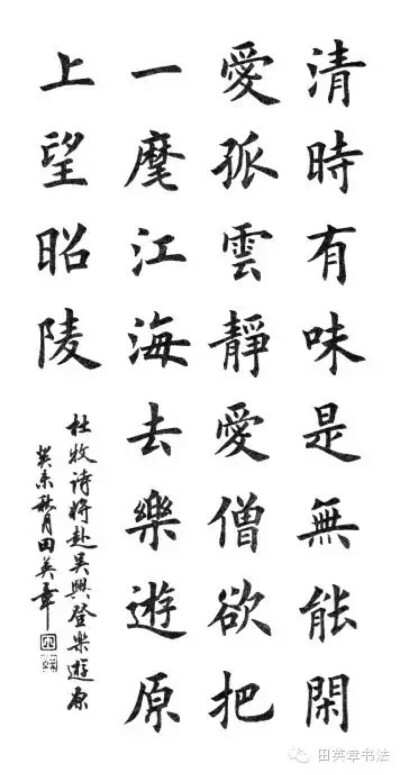 清時有味是無能閑
愛孤雲靜愛僧欲把
一麾江海去樂遊原
上望昭陵
杜牧诗将赴吴興登樂遊原
癸未秋月田英章
田英章书法